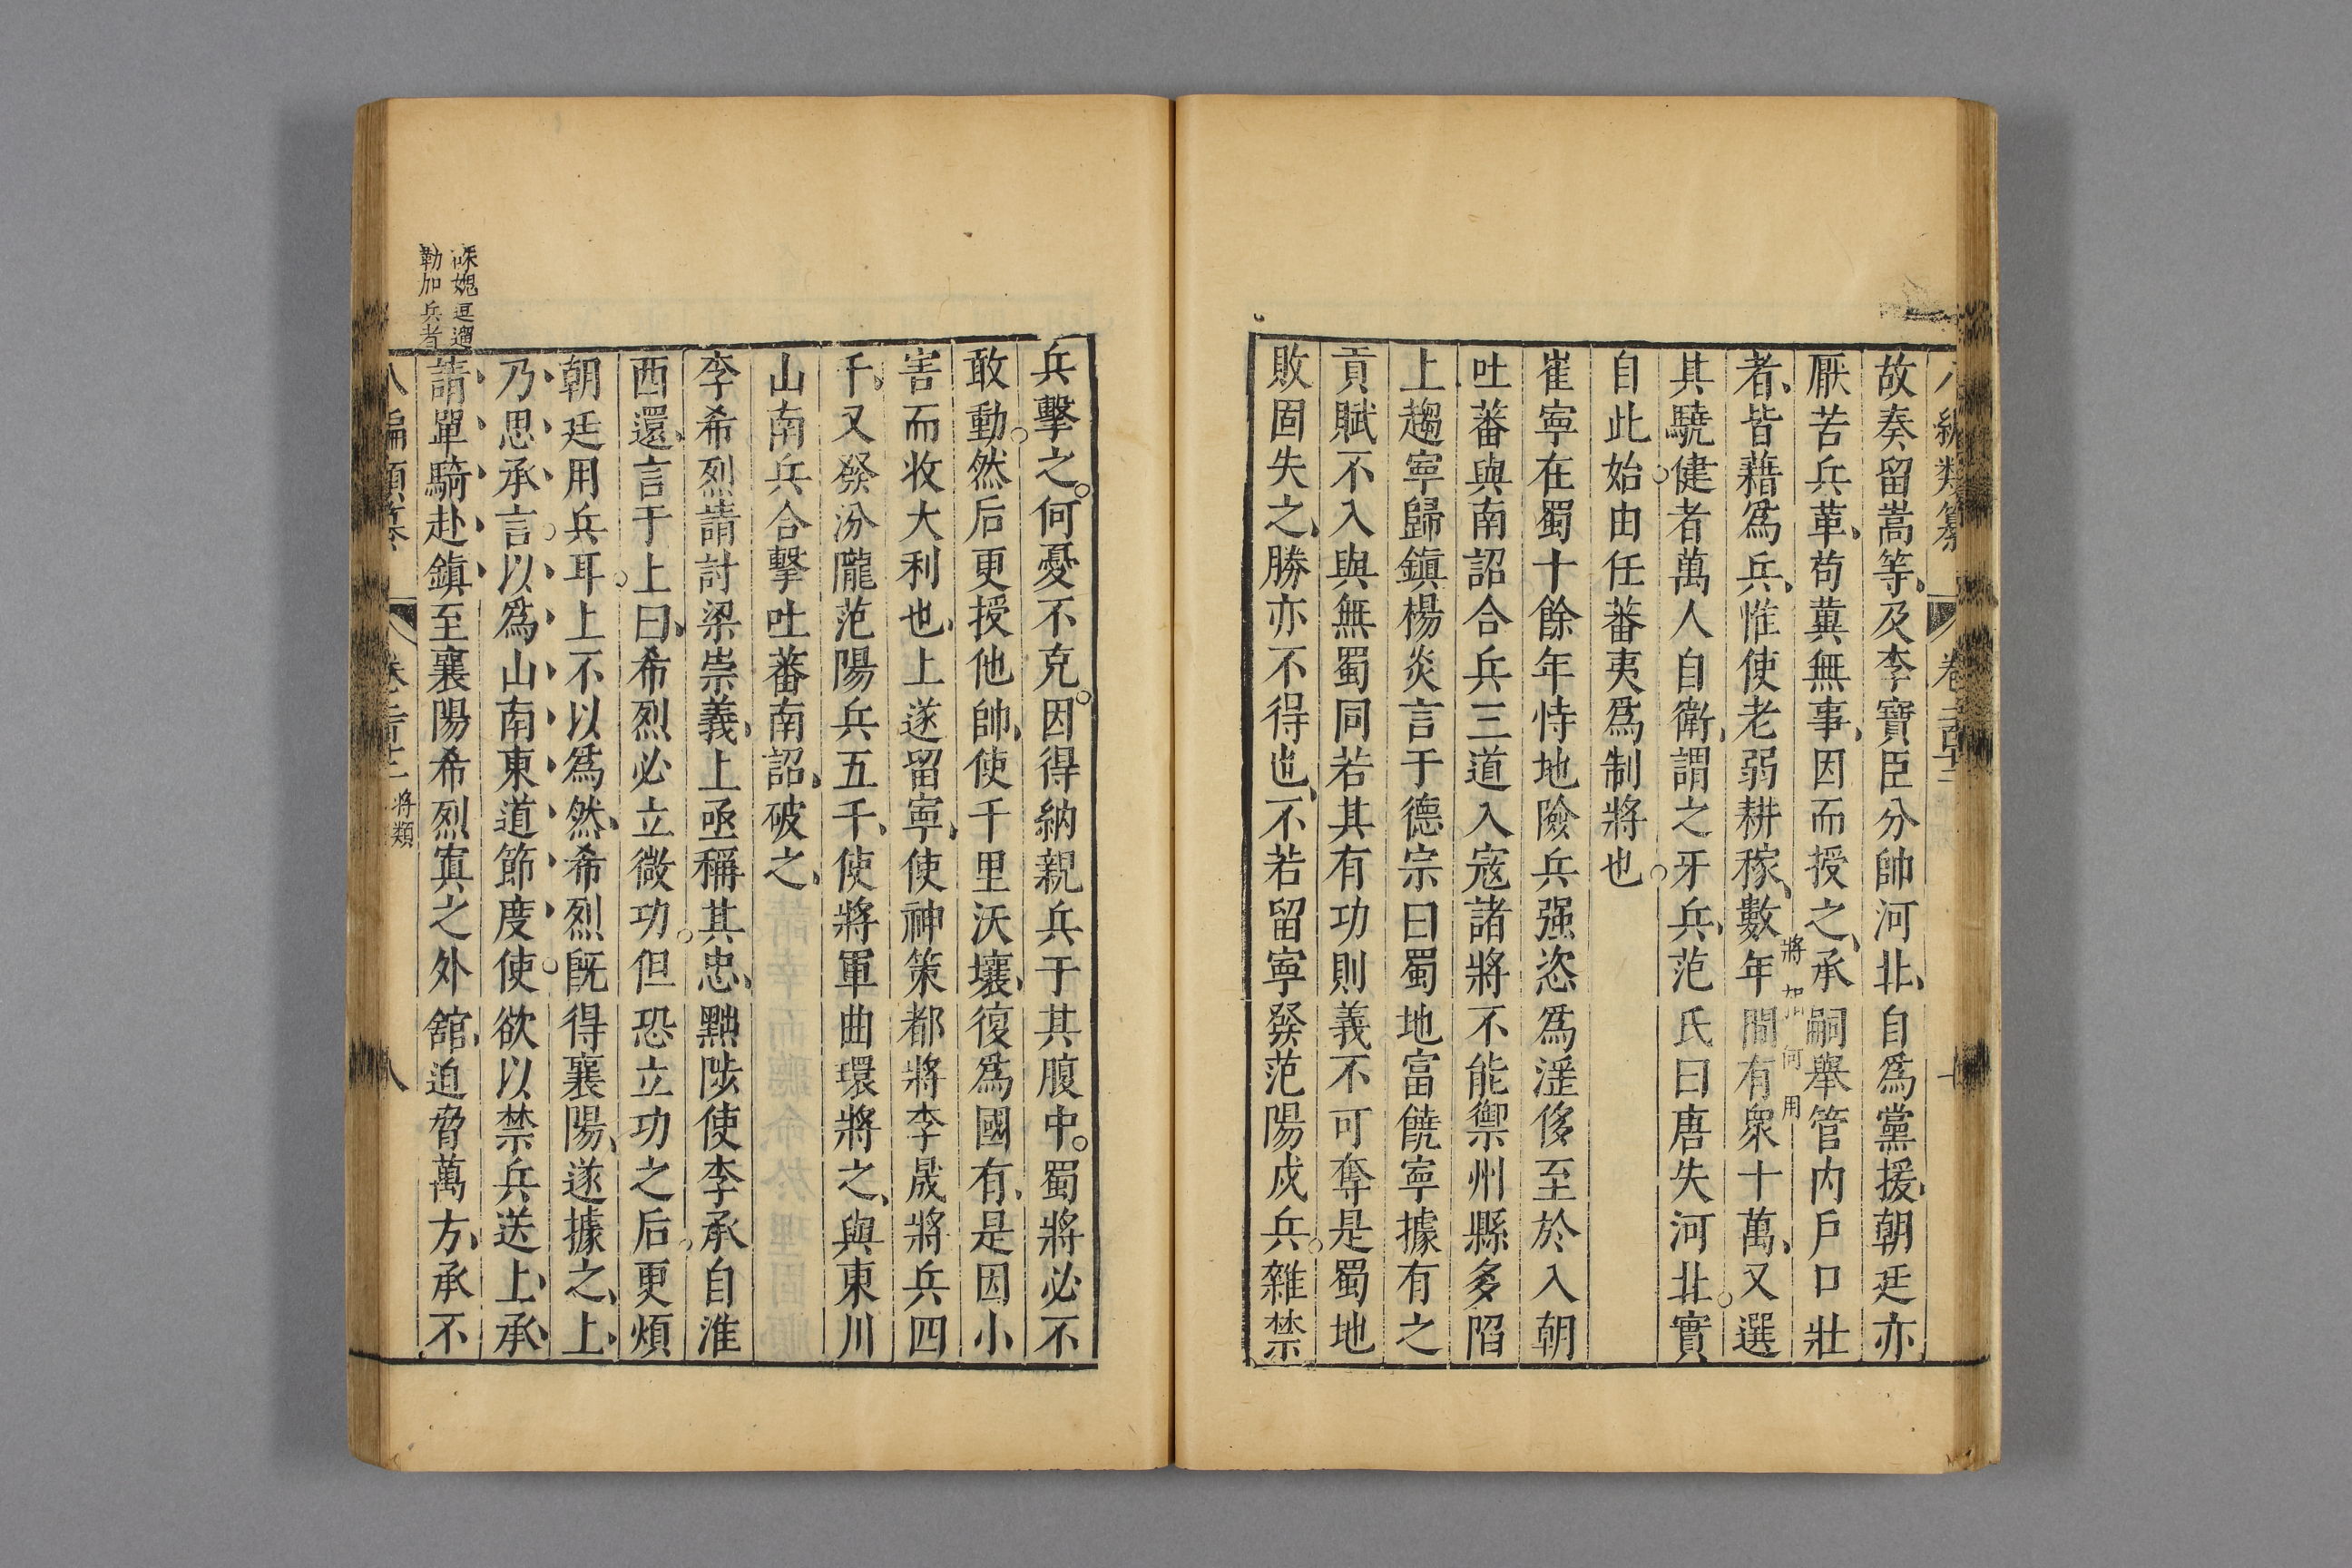 故奏留嵩等及李寶臣分帥河北自爲黨援朝廷亦
厭苦兵革苟冀無事因而授之承嗣舉管内戶口壯
將加何用
者皆藉爲兵惟使老弱耕稼數年間有衆十萬又選
其驍健者萬人自衛謂之牙兵范氏曰唐失河北實
自此始由任蕃夷爲制將也
崔寧在蜀十餘年恃地險兵强恣爲淫侈至於入朝
吐蕃與南詔合兵三道入寇諸將不能禦州縣多陷
上趨寧歸鎭楊炎言于德宗曰蜀地富饒寧據有之
貢賦不入與無蜀同若其有功則義不可奪是蜀地
敗固失之勝亦不得也不若留寧發范陽戍兵雜禁
兵擊之何憂不克因得納親兵于其腹中蜀將必不
敢動然后更授他帥使千里沃壤復爲國有是因小
害而收大利也上遂留寧使神策都將李晟將兵四
千又發汾隴范陽兵五千使將軍曲環將之與東川
山南兵合擊吐蕃南詔破之
李希烈請討梁崇義上亟稱其忠黜陟使李承自淮
西還言于上曰希烈必立微功但恐立功之后更煩
朝廷用兵耳上不以爲然希烈旣得襄陽遂據之上
乃思承言以爲山南東道節度使欲以禁兵送上承
請單騎赴鎭至襄陽希烈寘之外舘迫脅萬方承不
媿逗遛
勒加兵者
將類
八